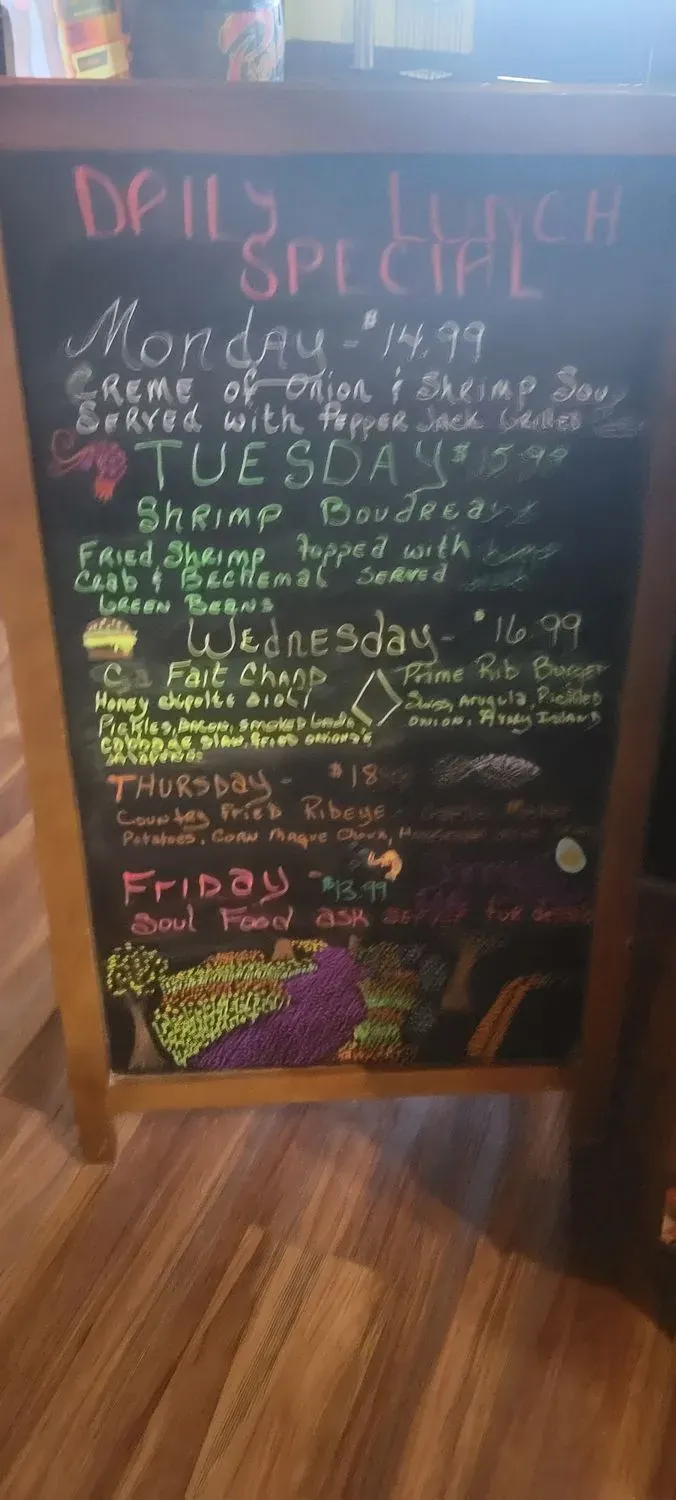 DAILY LUNCH
SPECIAL
Monday - $14.99
CREME of Onion & Shrimp Sou
SERVED with Pepper Jack Grilled
TUESDAY $15.99
Shrimp Boudreaux
Fried Shrimp topped with
Crab & Bechemal SERVED
Green Beans
Wednesday - $16.99
Fait Champ
Prime Rib Burger
Honey chipolte aioli
Swiss, Arugula, Pickled
Pickles, Bacon, smoked Gouda
onion, Avery Island
cabbage slaw, fried onions &
Jalapenos
THURSDAY - $18
Country Fried Ribeye
Potatoes, Corn Maque Choux,
Friday - $13.99
Soul Food ask server for details